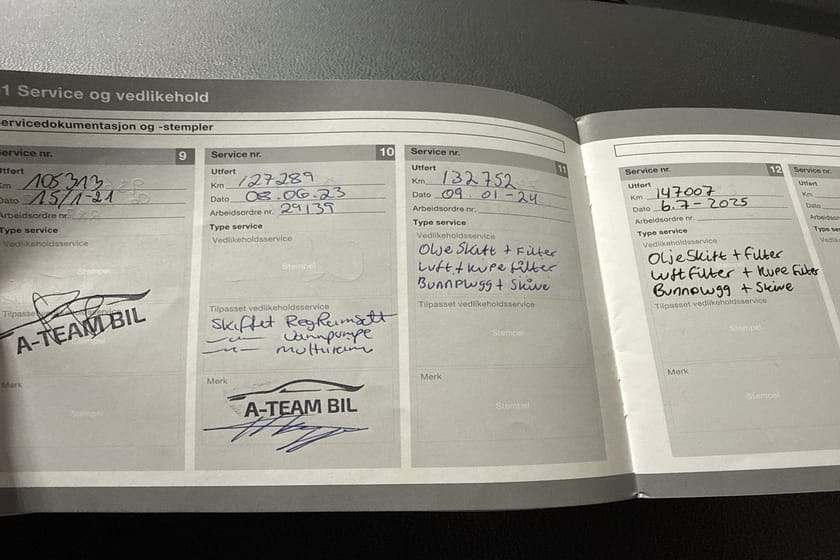 1 Service og vedlikehold
ervicedokumentasjon og -stempler
ervice nr. 9
tført
Km 105313
Dato 15/1-21
Arbeidsordre nr.
Type service
Vedlikeholdsservice
Stempel
Tilpasset
A-TEAM BIL
Merk
Stempel
Service nr. 10
Utført
Km 127289
Dato 08.06.23
Arbeidsordre nr. 29139
Type service
Vedlikeholdsservice
Stempel
Tilpasset vedlikeholdsservice
Skiftet RegReimsett
—"— Vannpumpe
—"— multireim
Merk
A-TEAM BIL
Service nr. 11
Utført
Km 132752
Dato 09.01-24
Arbeidsordre nr.
Type service
Vedlikeholdsservice
Olje Skift + Filter
Luft + Kupe Filter
Bunnplugg + Skive
Tilpasset vedlikeholdsservice
Stempel
Merk
Stempel
Service nr. 12
Utført
Km 147007
Dato 6.7-2025
Arbeidsordre nr.
Type service
Vedlikeholdsservice
Olje Skift + Filter
Luftfilter + Kupe Filter
Bunnplugg + Skive
Tilpasset vedlikeholdsservice
Stempel
Merk
Stempel
Service nr.
Utført
Km
Dato
Arbe
Type se
Vedlike
Tilpa
Mer